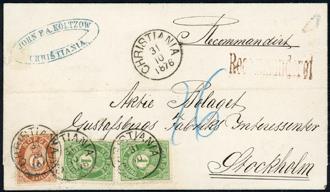 JOHN P. A. KOLTZOW
CHRISTIANIA.
CHRISTIANIA
31
10
1876
Recommandirt
Recommanderet
Aktie Bolaget
Gustafsbergs Fabriks Interessenter
Stockholm
CHRISTIANIA
CHRISTIANIA
1
1